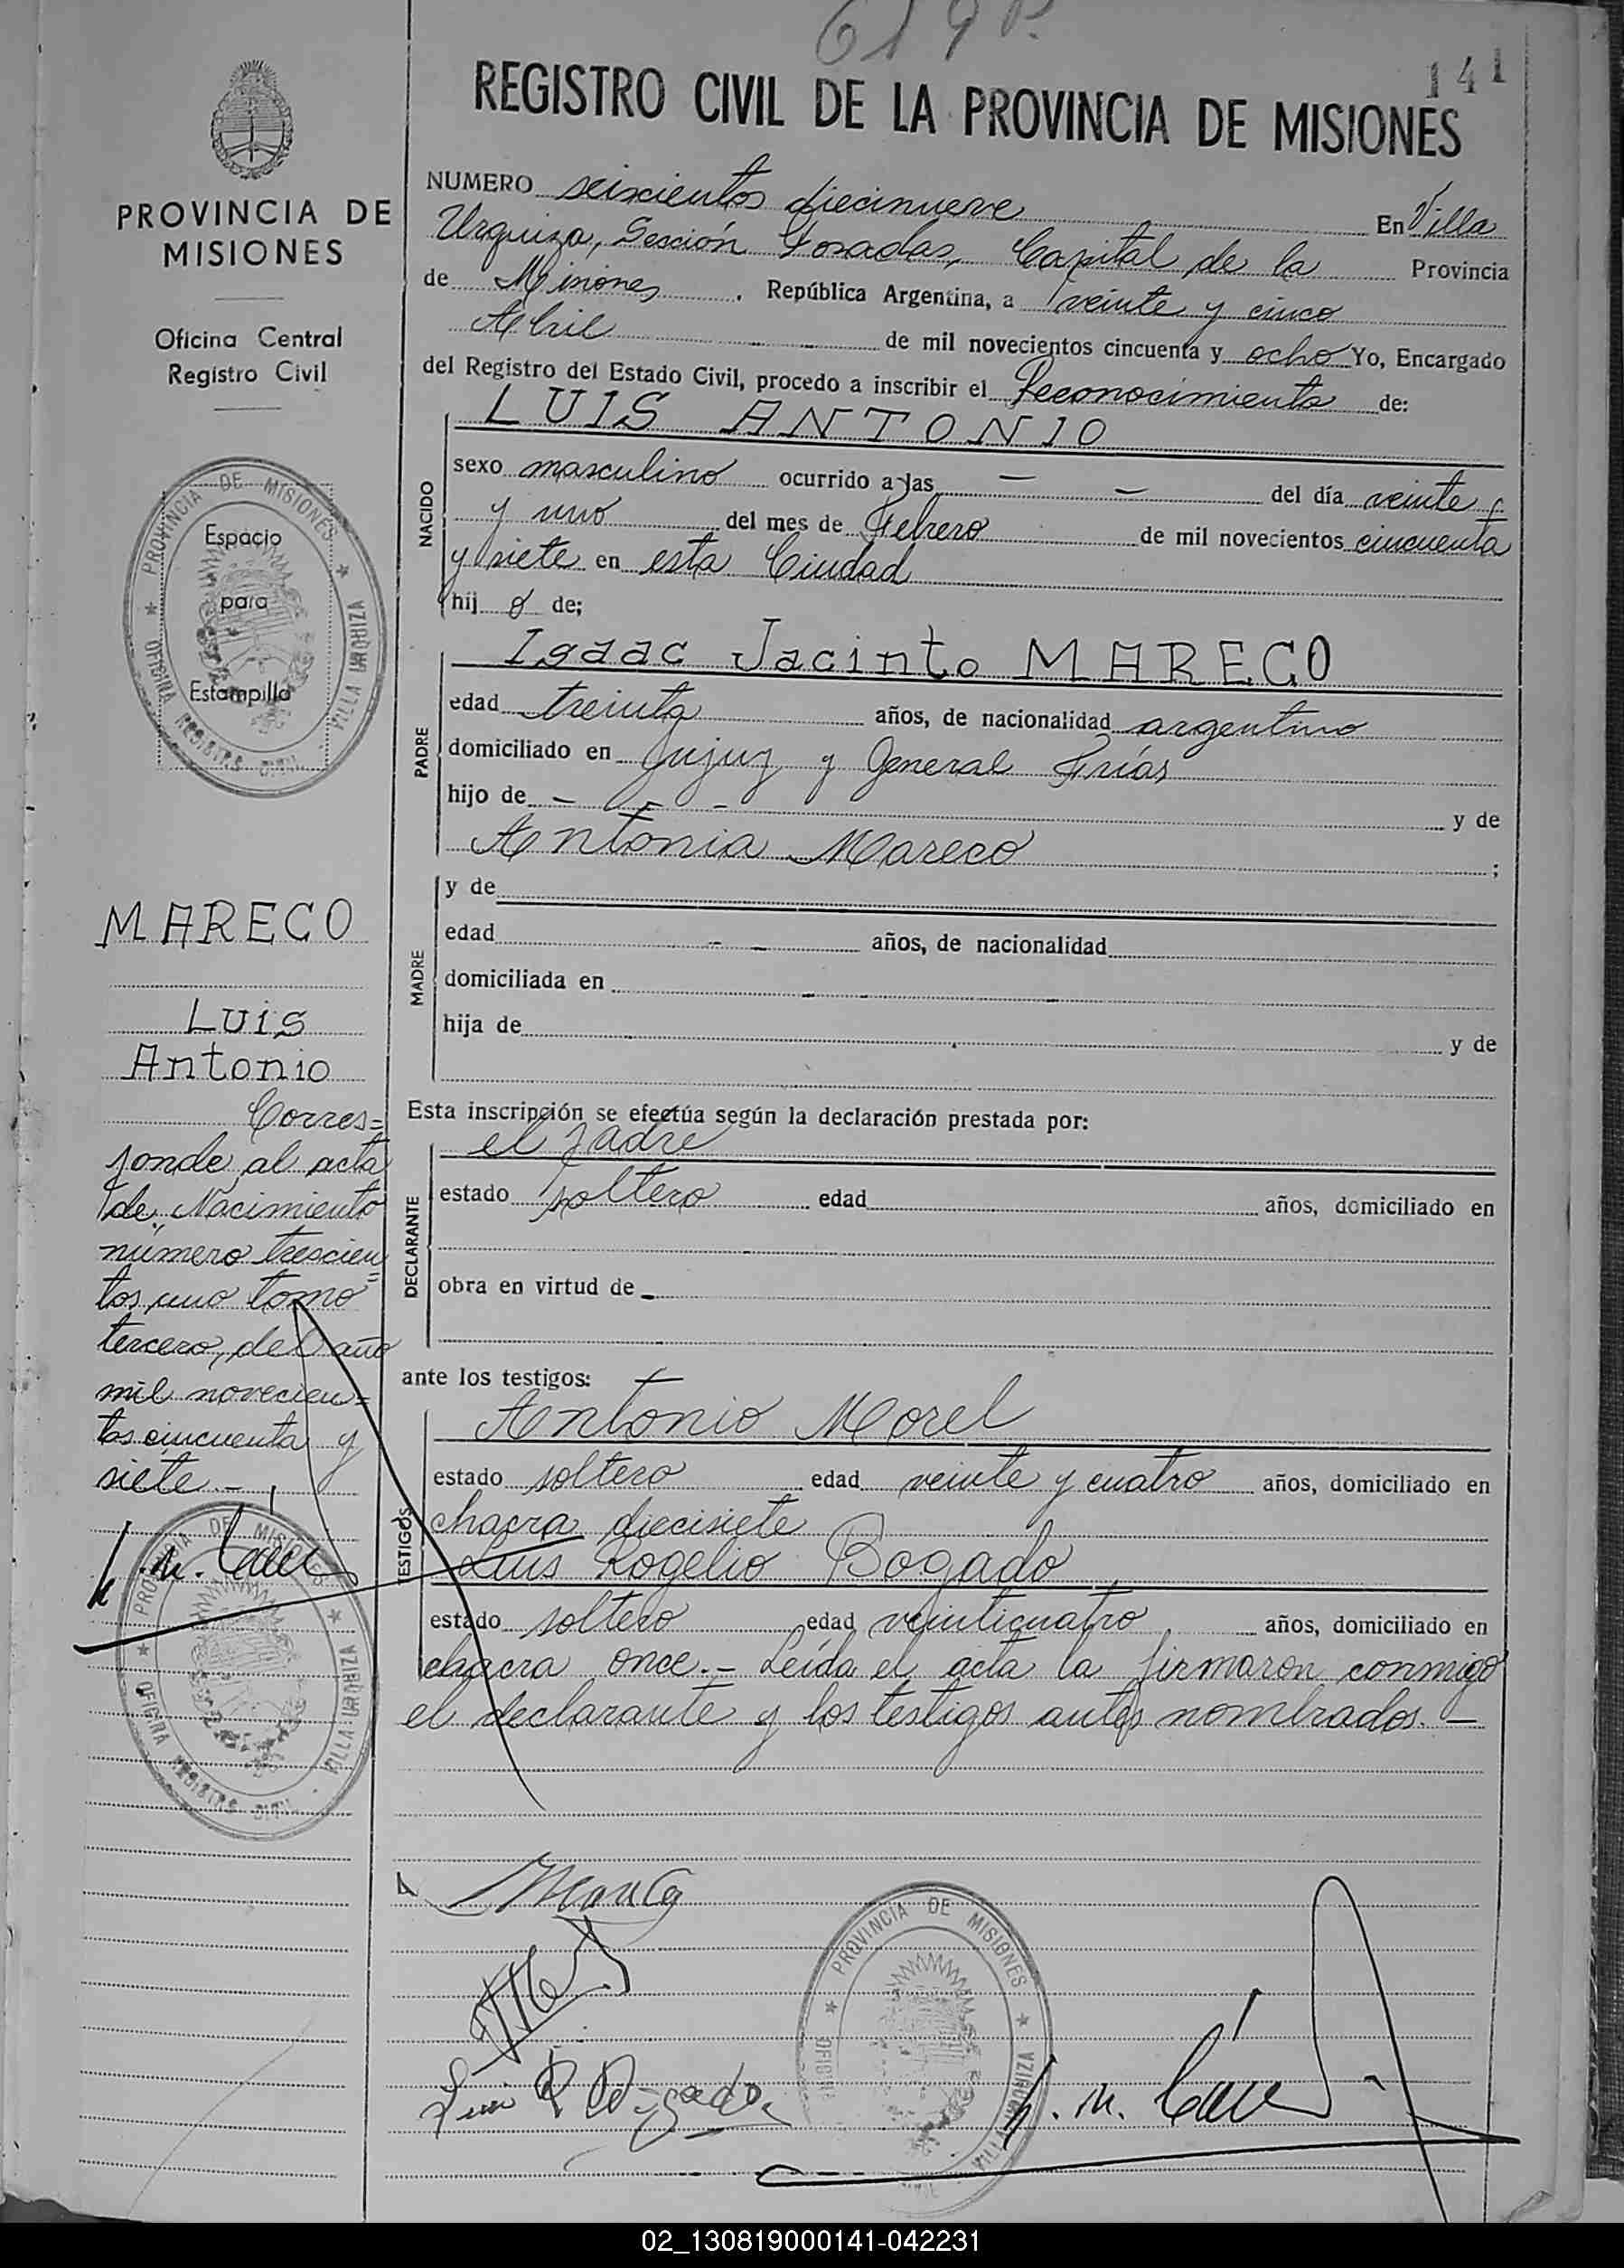 619 P.
141
REGISTRO CIVIL DE LA PROVINCIA DE MISIONES
PROVINCIA DE
MISIONES
Oficina Central
Registro Civil
PROVINCIA DE MISIONES
OFICINA REGISTRO CIVIL
VILLA URQUIZA
Espacio
para
Estampilla
MARECO
Luis
Antonio
Corres=
ponde al acta
de Nacimiento
número trescien=
tos uno tomo
tercero, del año
mil novecien=
tos cincuenta y
siete.-
PROVINCIA DE MISIONES
OFICINA REGISTRO CIVIL
VILLA URQUIZA
NUMERO seiscientos diecinueve En Villa
Urquiza, Sección Posadas, Capital de la Provincia
de Misiones. República Argentina, a veinte y cinco
Abril de mil novecientos cincuenta y ocho Yo, Encargado
del Registro del Estado Civil, procedo a inscribir el Reconocimiento de:
NACIDO
LUIS ANTONIO
sexo masculino ocurrido a las — — del día veinte
y uno del mes de Febrero de mil novecientos cincuenta
y siete en esta Ciudad
hij o de;
PADRE
Isaac Jacinto MARECO
edad treinta años, de nacionalidad argentino
domiciliado en Jujuy y General Frías
hijo de - - - y de
Antonia Mareco ;
MADRE
y de
edad - - años, de nacionalidad
domiciliada en
hija de y de
Esta inscripción se efectúa según la declaración prestada por:
DECLARANTE
el padre
estado soltero edad años, domiciliado en
obra en virtud de
ante los testigos:
TESTIGOS
Antonio Morel
estado soltero edad veinte y cuatro años, domiciliado en
chacra diecisiete
Luis Rogelio Bogado
estado soltero edad veinticuatro años, domiciliado en
chacra once.- Leída el acta la firmaron conmigo
el declarante y los testigos antes nombrados.-
Luis R Bogado
PROVINCIA DE MISIONES
OFICINA
VILLA URQUIZA
02_130819000141-042231